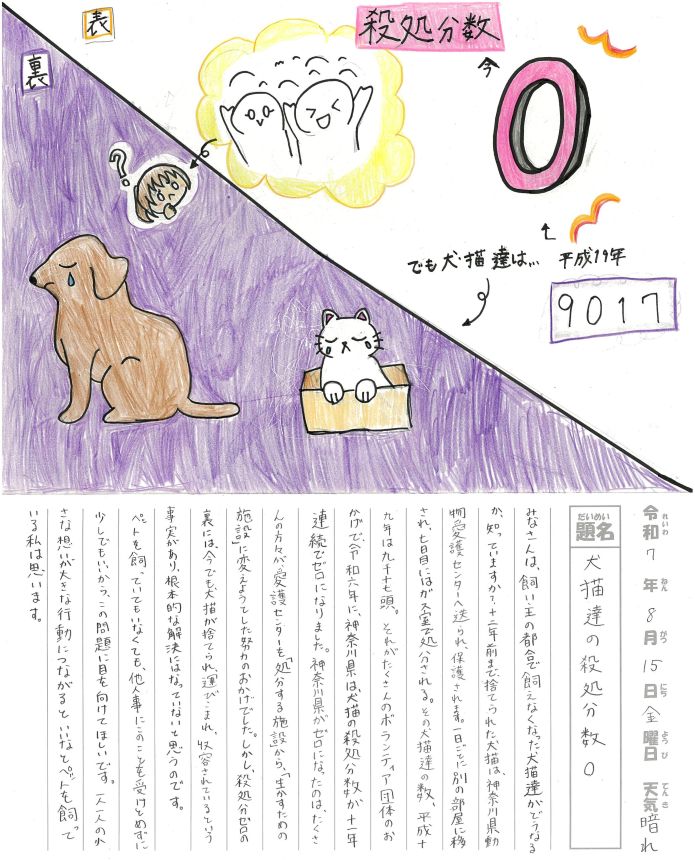 表
裏
殺処分数
今
0
?
でも犬・猫達は…
平成19年
9017
令和7年8月15日金曜日 天気 暗れ
れいわ ねん がつ にち ようび てんき
題名
だいめい
犬猫達の殺処分数0
みなさんは、飼い主の都合で飼えなくなった犬猫達がどうなる
か、知っていますか?十二年前まで、捨てられた犬猫は、神奈川県動
物愛護センターへ送られ、保護されます。一日ごとに別の部屋に移
され、七日目にはガス室で処分される。その犬猫達の数、平成十
九年は九千十七頭。それがたくさんのボランティア団体のお
かげで、令和六年に、神奈川県は、犬猫の殺処分数が十一年
連続でゼロになりました。神奈川県がゼロになったのは、たくさ
んの方々が、愛護センターを「処分する施設」から、「生かすための
施設」に変えようとした努力のおかげでした。しかし、殺処分ゼロの
裏には、今でも犬猫が捨てられ、運びこまれ、収容されているという
事実があり、根本的な解決にはなっていないと思うのです。
ペットを飼っていてもいなくても、他人事にこのことを受けとめずに
少しでもいいから、この問題に目を向けてほしいです。一人一人の小
さな想いが大きな行動につながるといいなとペットを飼って
いる私は思います。